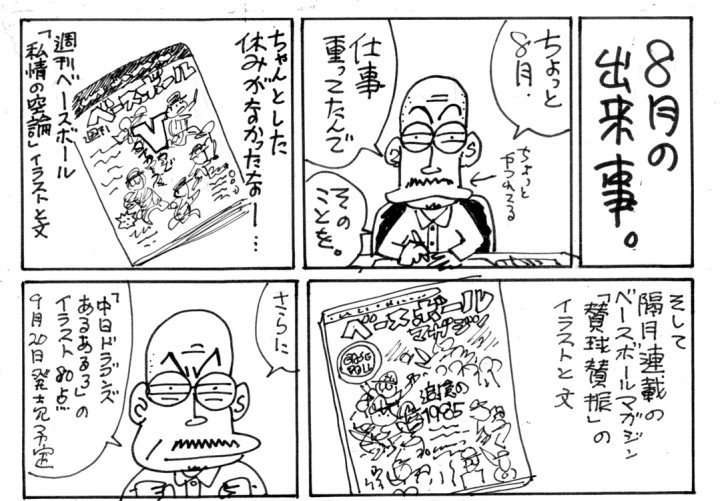 8月の
出来事。
ちょっと
8月、
仕事
重ってたんで
ちょっと
やつれてる
そのことを。
ちゃんとした
休みがなかったなー…
ベースボール
週刊
V
週刊ベースボール
「私情の空論」イラストと文
そして
隔月連載の
ベースボールマガジン
「賛球賛振」の
イラストと文
ベースボール
マガジン
BASE
BALL
追憶の
1985
さらに
「中日ドラゴンズ
あるある3」の
イラスト80点
9月20日発売予定